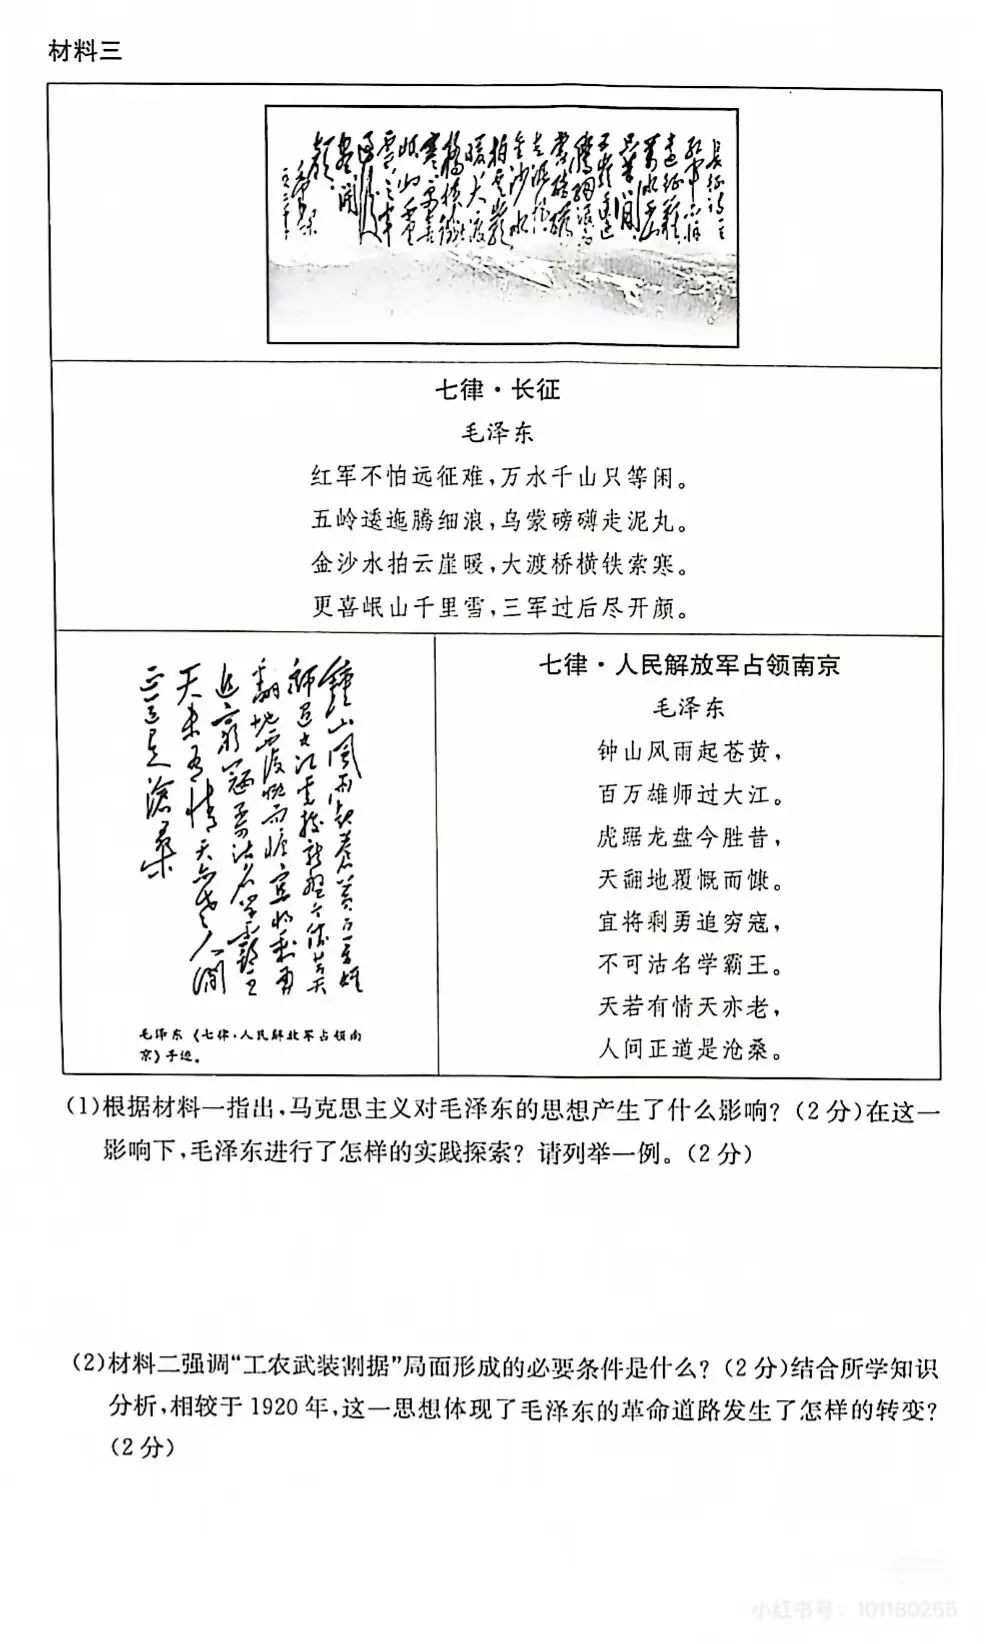 材料三
七律·长征
毛泽东
红军不怕远征难，万水千山只等闲。
五岭逶迤腾细浪，乌蒙磅礴走泥丸。
金沙水拍云崖暖，大渡桥横铁索寒。
更喜岷山千里雪，三军过后尽开颜。
钟山风雨起苍黄百万雄
师过大江虎踞龙盘今胜昔天
翻地覆慨而慷宜将剩勇
追穷寇不可沽名学霸王
天若有情天亦老人间
正道是沧桑
毛泽东《七律·人民解放军占领南
京》手迹。
七律·人民解放军占领南京
毛泽东
钟山风雨起苍黄，
百万雄师过大江。
虎踞龙盘今胜昔，
天翻地覆慨而慷。
宜将剩勇追穷寇，
不可沽名学霸王。
天若有情天亦老，
人间正道是沧桑。
(1)根据材料一指出，马克思主义对毛泽东的思想产生了什么影响？(2分)在这一
影响下，毛泽东进行了怎样的实践探索？请列举一例。(2分)
(2)材料二强调“工农武装割据”局面形成的必要条件是什么？(2分)结合所学知识
分析，相较于1920年，这一思想体现了毛泽东的革命道路发生了怎样的转变？
(2分)
小红书号：101180255